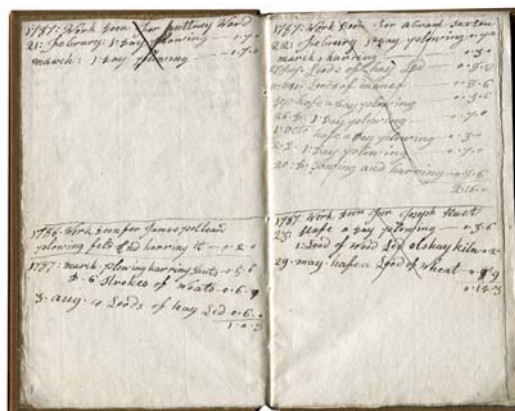 1787: Work Doon for
21: Februry: 1: Day plowing — 0 . 7 . 0
march: 1: Day plowing — 0 . 7 . 0
1786: Work Doon for James
plowing and harring it — 0 . 2 . 0
1787: march. plowing harring 0 . 5 . 6
to . 6 Strokes of 0 . 6 . 9
3. aug. 4 Loods of hay Led 0 . 6 . 0
1 . 0 . 3
1787: Work Doon for Abram Saxton
22: Februry 1 Day plowing 0 . 7 . 0
march: harring — 0 . 3 . 0
Loods of hay Led
Loods of maner — 0 . 3 . 6
hafe a Day plowing 0 . 3 . 6
1: Day plowing — 0 . 7 . 0
hafe a Day plowing — 0 . 3 . 0
1: Day plowing — 0 . 7 . 0
20: to and harring — 0 . 5 . 6
2 . 16 . 0
1787 Work Doon for Joseph
23: Hafe a Day plowing — 0 . 3 . 6
1: Lood of Led kiln
29. may. hafe a Lood of wheat
0 . 14 . 3